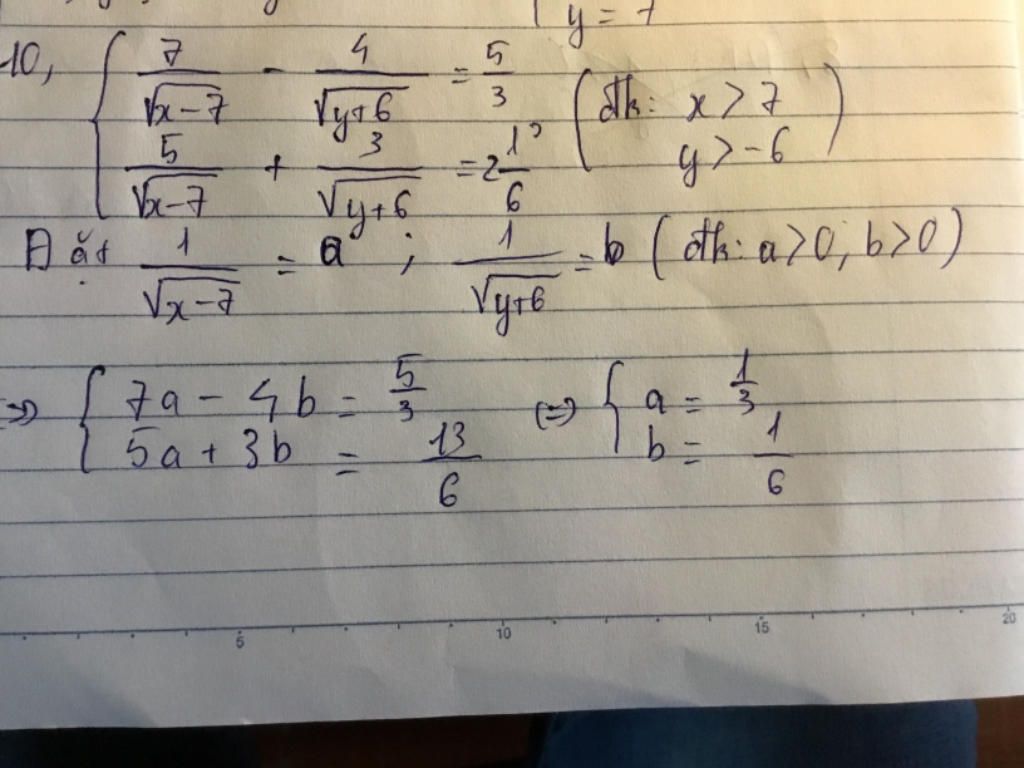 y = 7
10, { 7/√(x-7) - 4/√(y+6) = 5/3 (đk: x > 7
5/√(x-7) + 3/√(y+6) = 2 1/6 y > -6)
Đặt 1/√(x-7) = a ; 1/√(y+6) = b (đk: a>0; b>0)
=> { 7a - 4b = 5/3 (=) { a = 1/3
5a + 3b = 13/6 b = 1/6
5 10 15 20